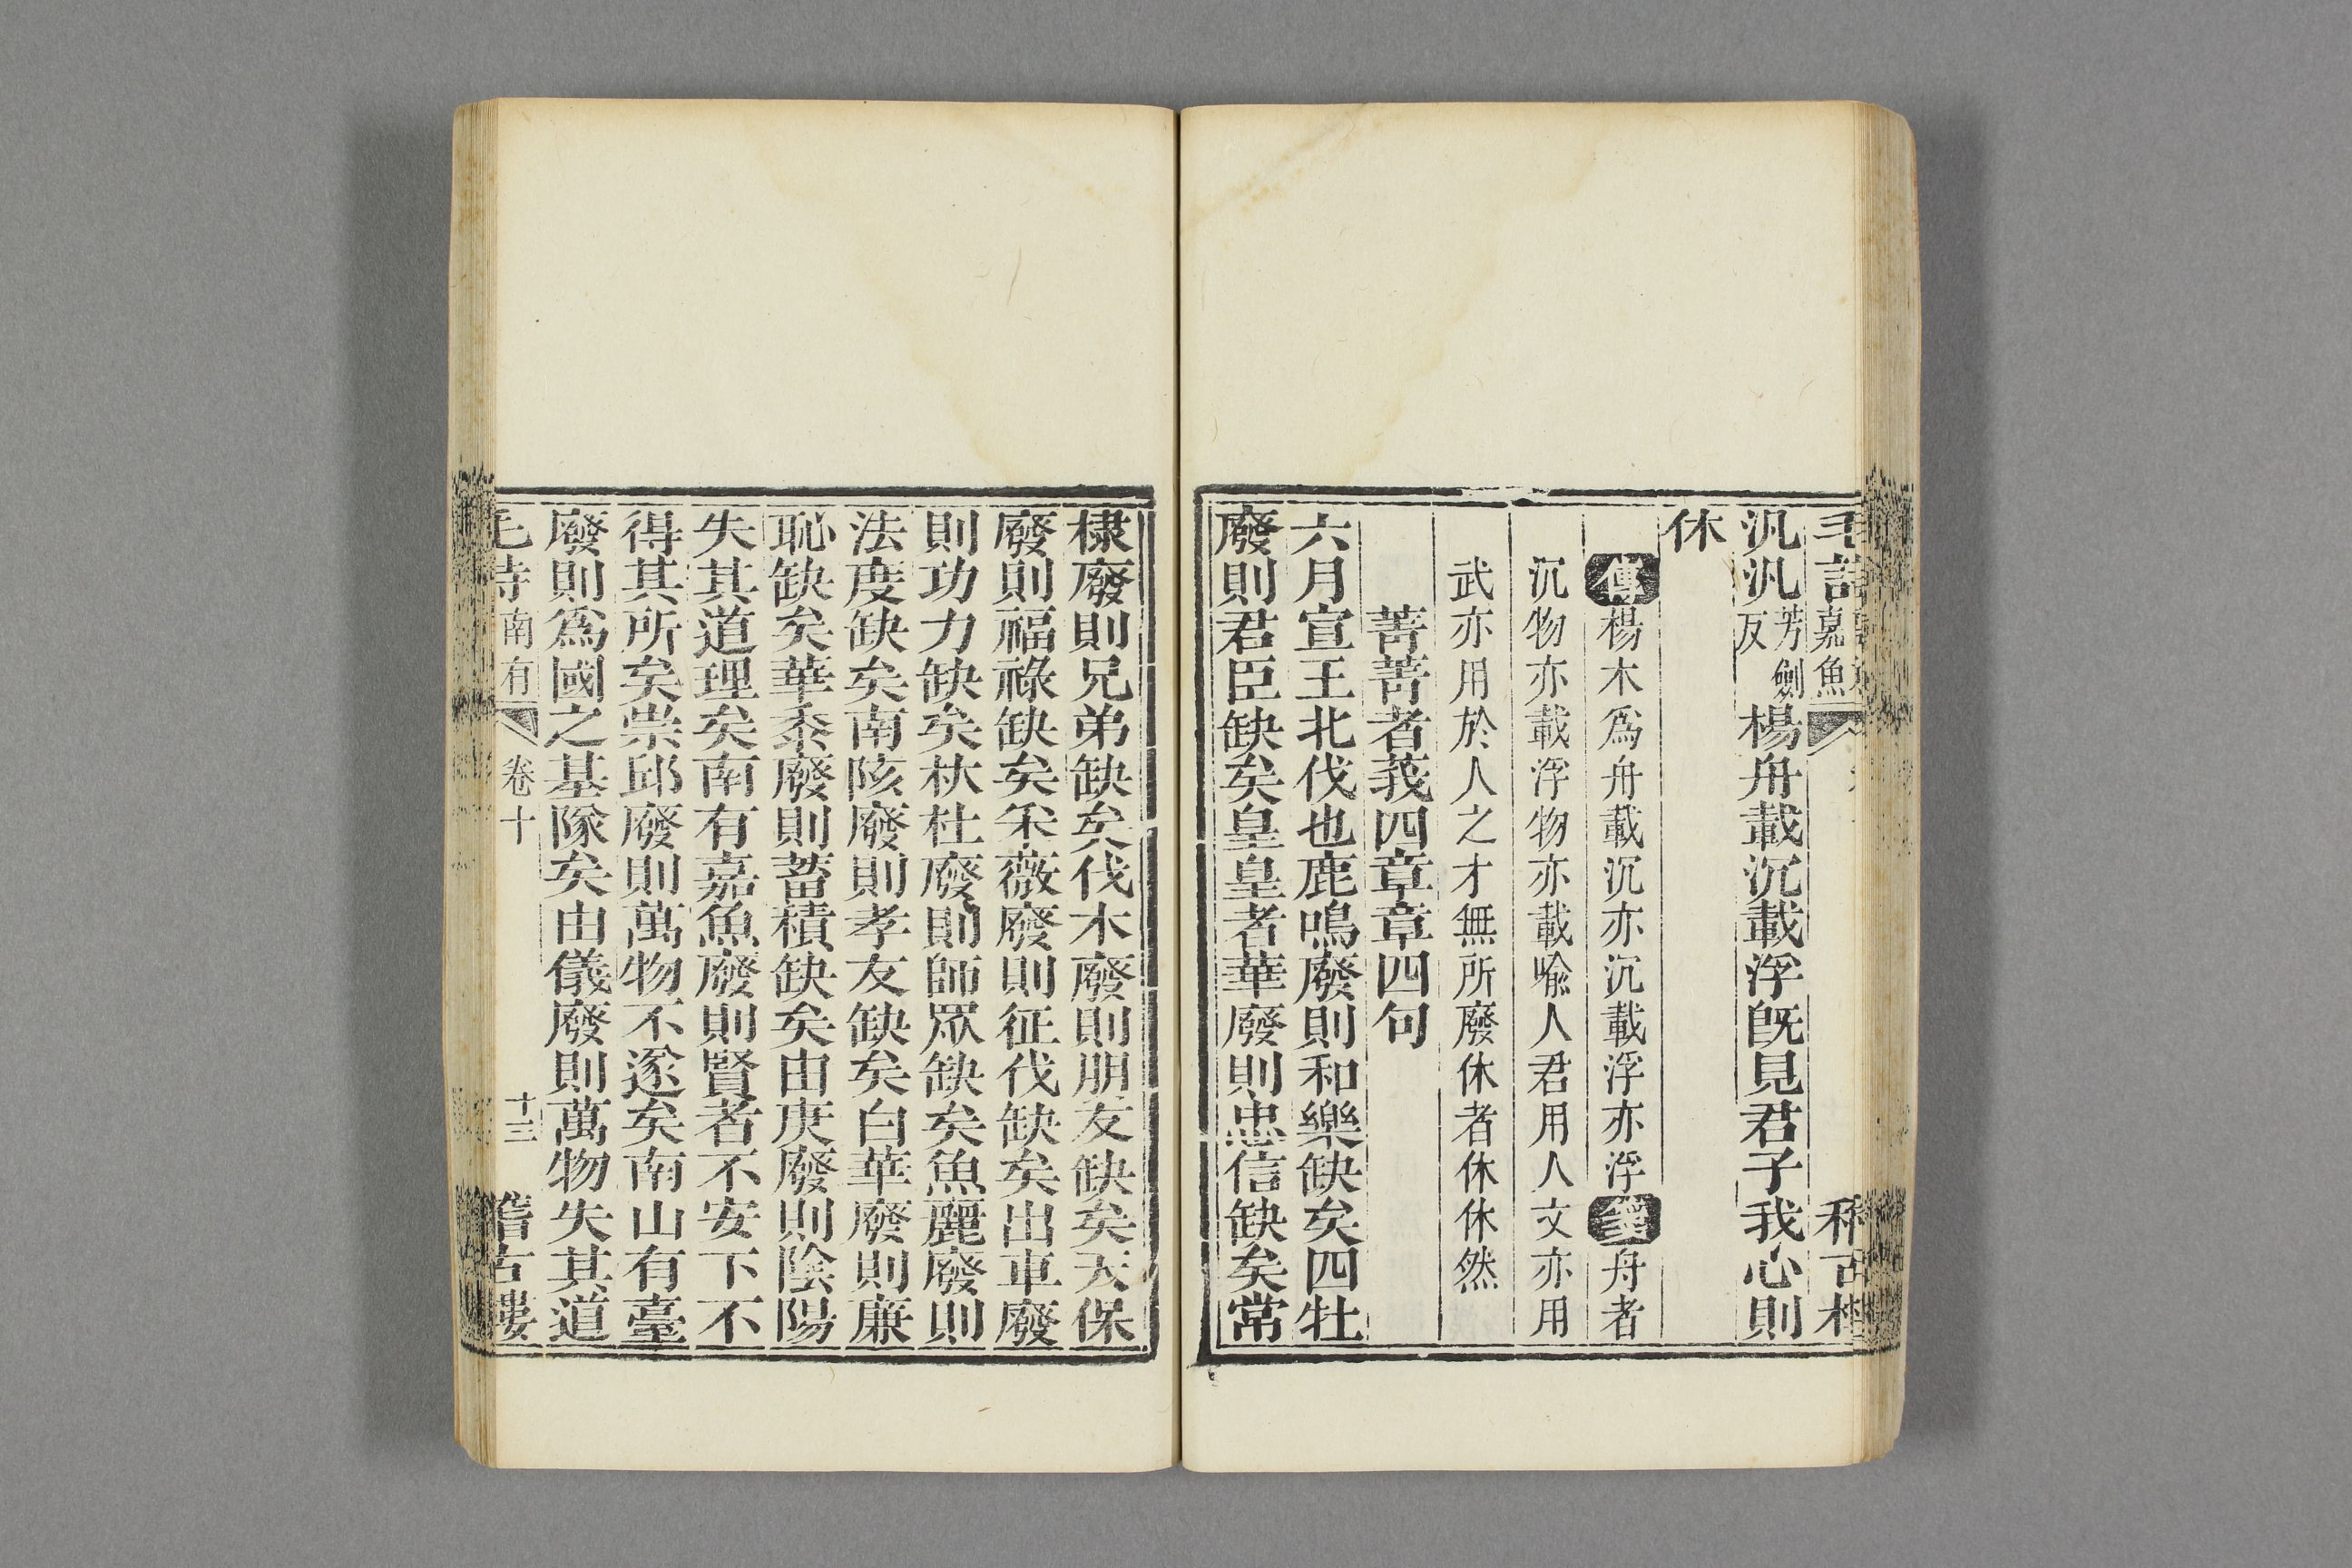 嘉魚
汎汎芳劍反楊舟載沉載浮旣見君子我心則
休
傳楊木爲舟載沉亦沉載浮亦浮箋舟者
沉物亦載浮物亦載喩人君用人文亦用
武亦用於人之才無所廢休者休休然
菁菁者莪四章章四句
六月宣王北伐也鹿鳴廢則和樂缺矣四牡
廢則君臣缺矣皇皇者華廢則忠信缺矣常
棣廢則兄弟缺矣伐木廢則朋友缺矣天保
廢則福祿缺矣采薇廢則征伐缺矣出車廢
則功力缺矣杕杜廢則師眾缺矣魚麗廢則
法度缺矣南陔廢則孝友缺矣白華廢則廉
恥缺矣華黍廢則蓄積缺矣由庚廢則陰陽
失其道理矣南有嘉魚廢則賢者不安下不
得其所矣崇邱廢則萬物不遂矣南山有臺
廢則爲國之基隊矣由儀廢則萬物失其道
毛詩南有 卷十 十三 稽古樓